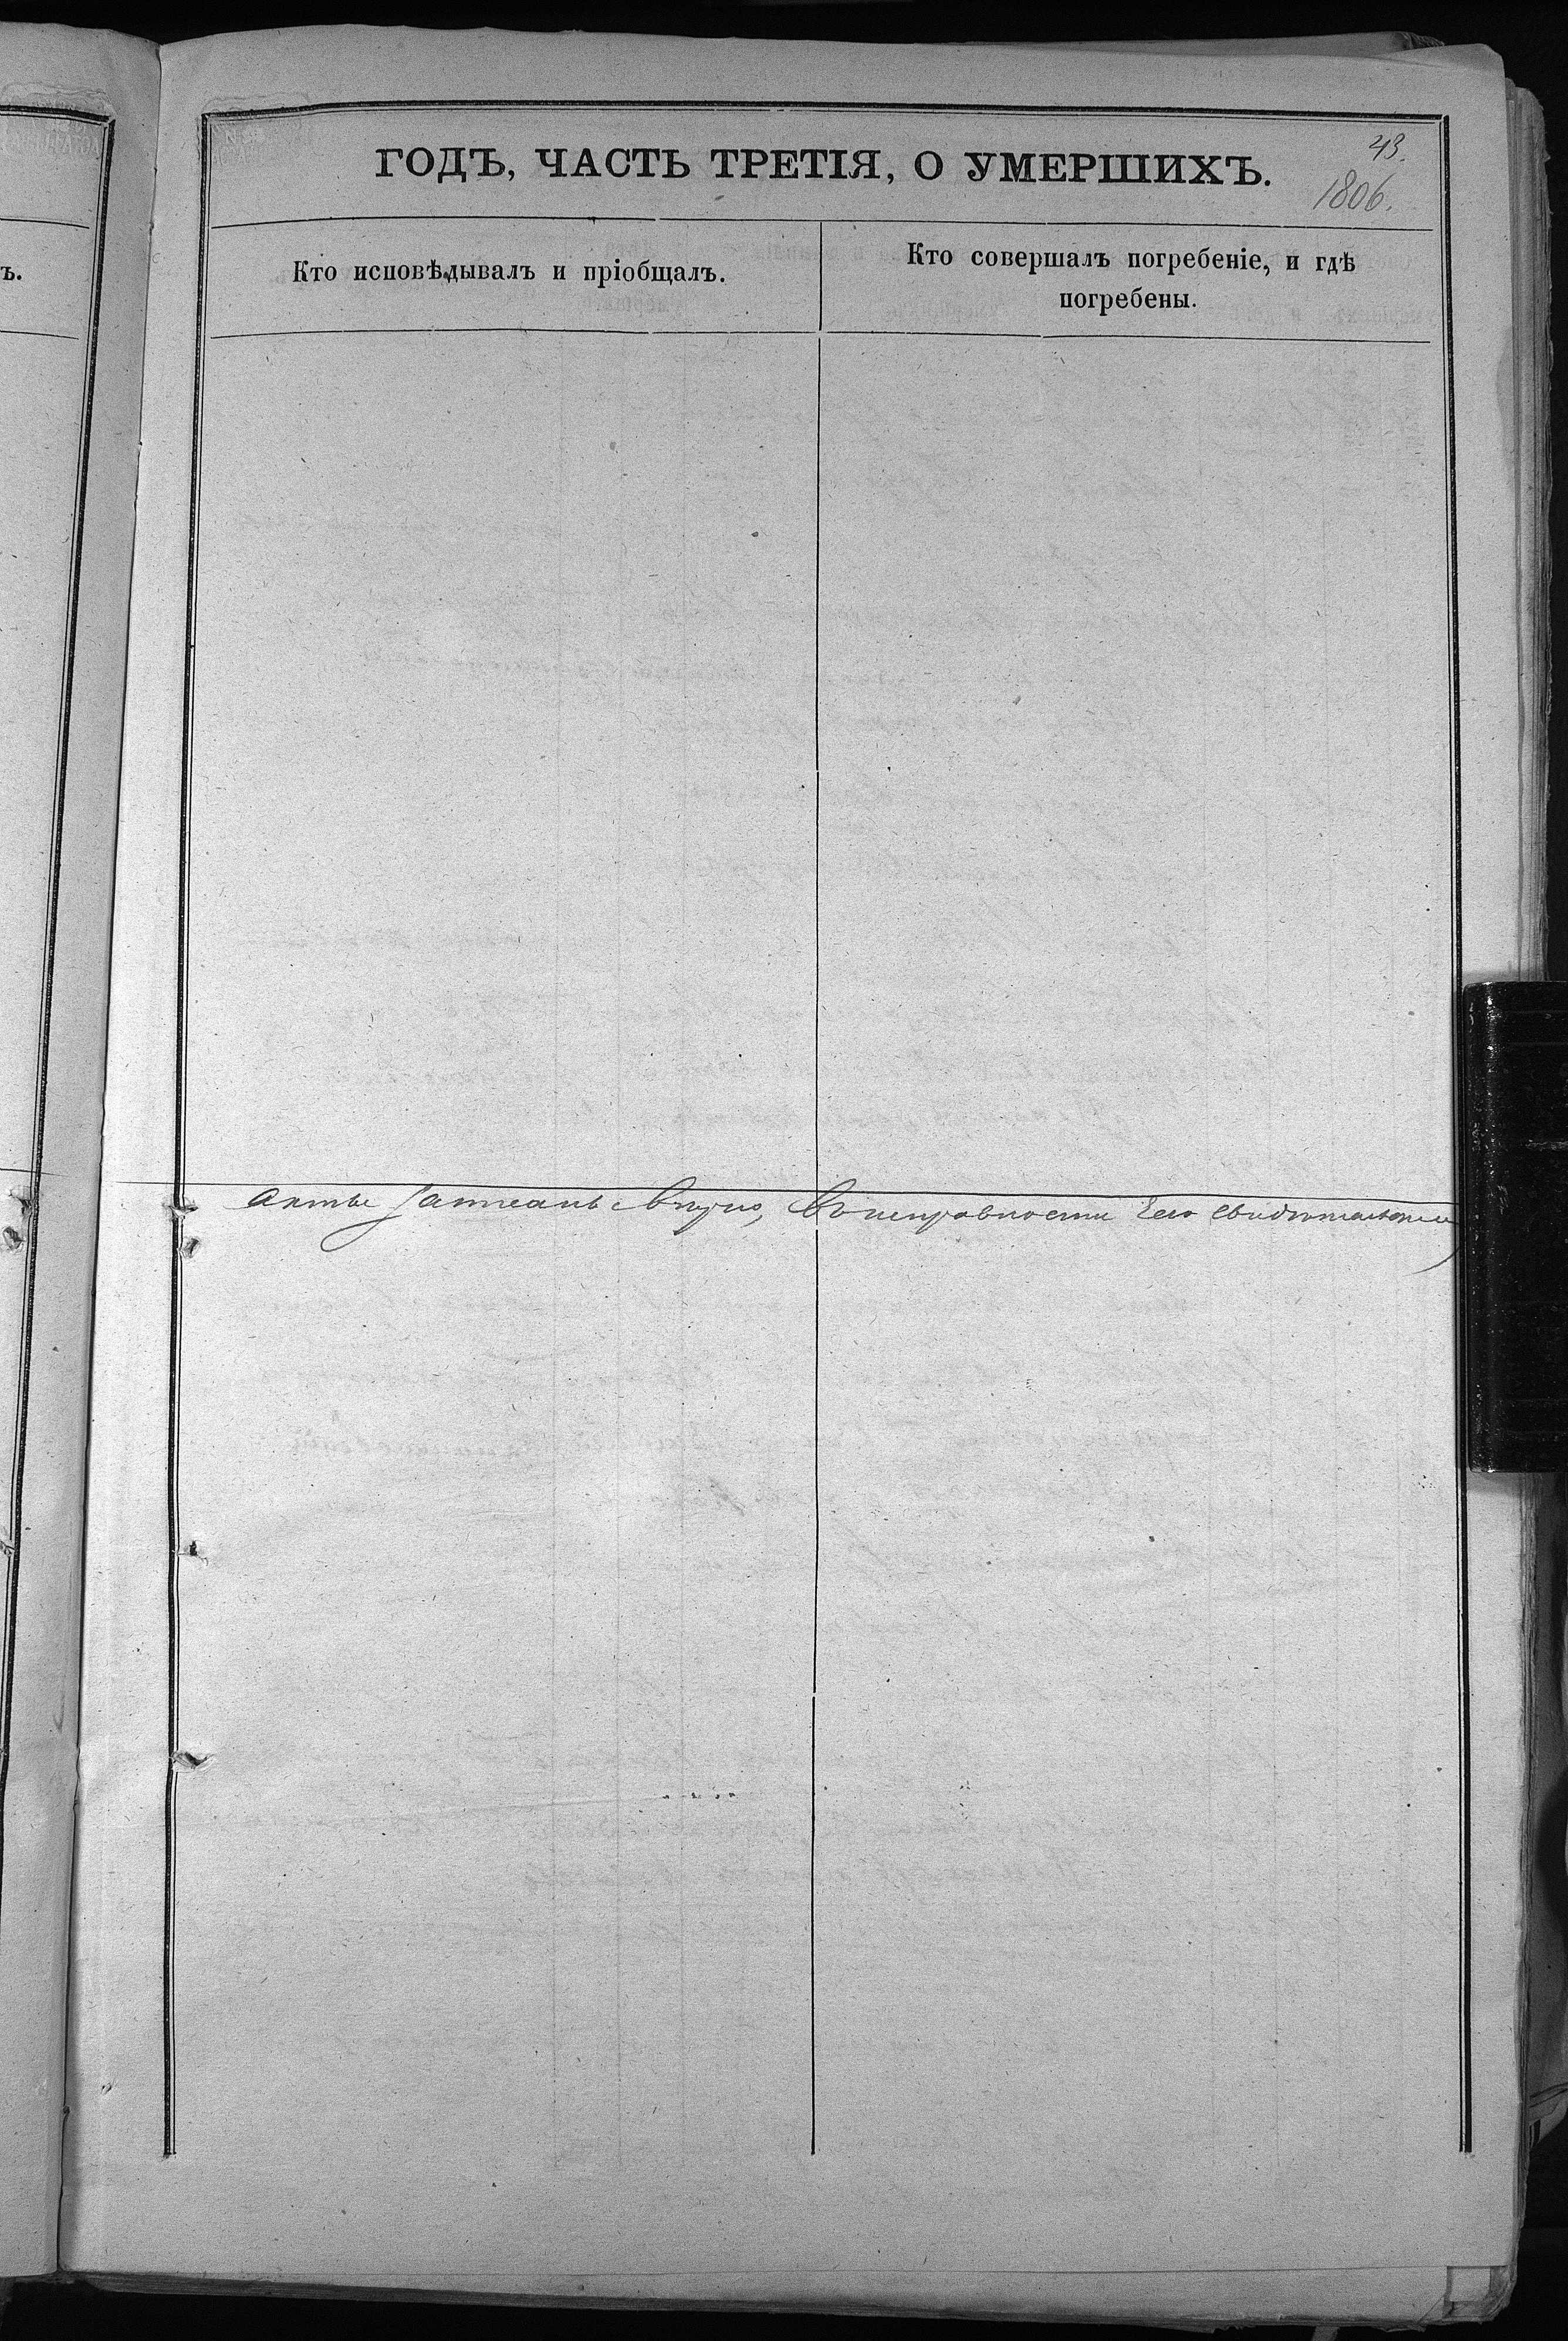 43.
ГОДЪ, ЧАСТЬ ТРЕТІЯ, О УМЕРШИХЪ.
1806.
ъ.
Кто исповѣдывалъ и пріобщалъ.
Кто совершалъ погребеніе, и гдѣ
погребены.
Акты записанъ вѣрно, въ исправности его свидѣтельст